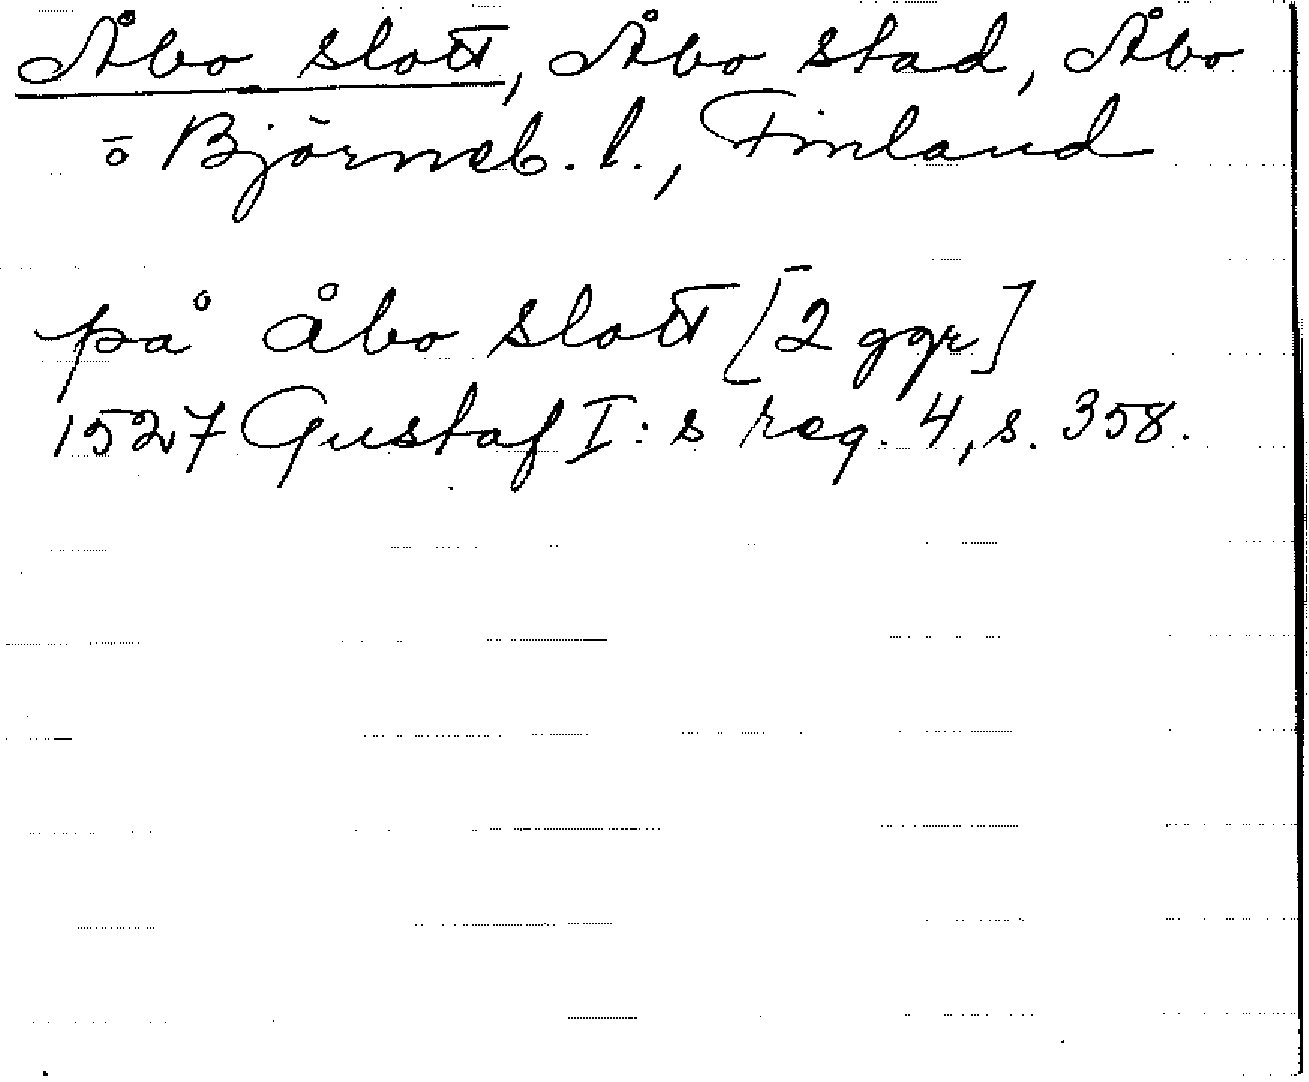 Åbo slott, Åbo stad, Åbo
o Björneb. l., Finland
på åbo slott [2 ggr]
1527 Gustaf I:s reg. 4, s. 358.